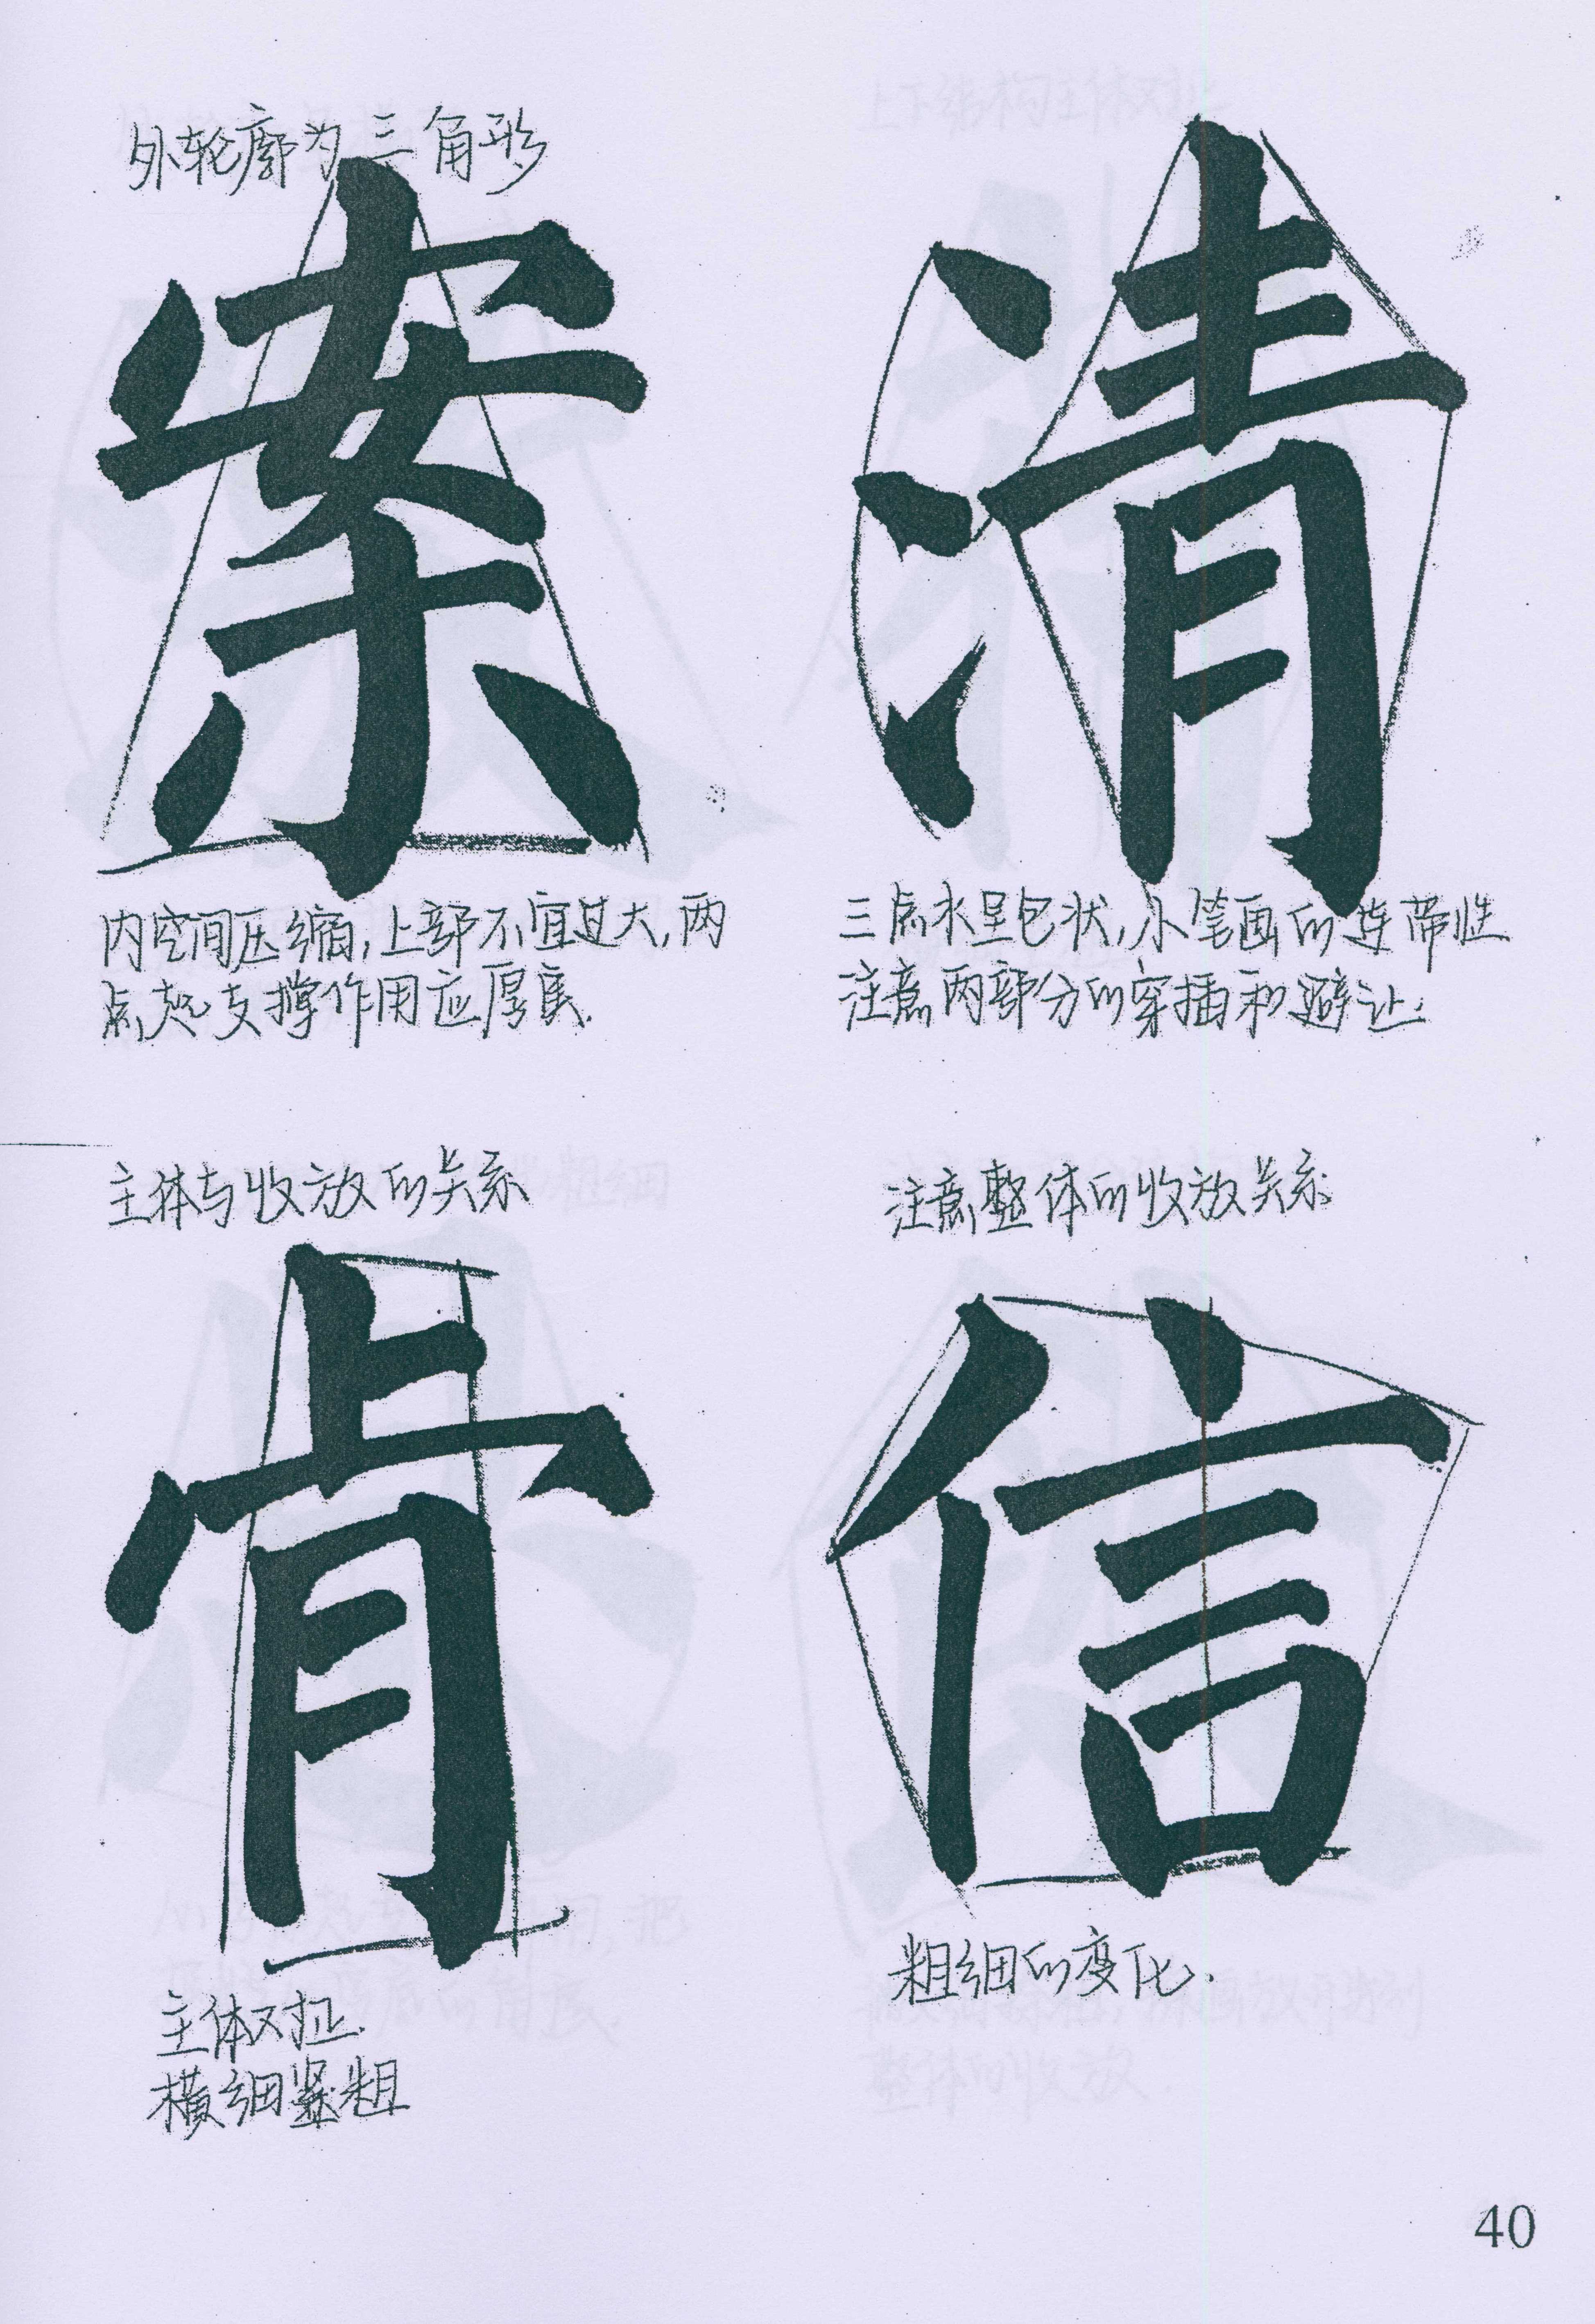 外轮廓为三角形
案
内空间压缩,上部不宜过大,两
点起支撑作用应厚度.
清
三点水呈包状,小笔画的连带性
注意两部分的穿插和避让.
主体与收放的关系
骨
主体对拉.
横细竖粗
注意整体的收放关系.
信
粗细的变化.
40